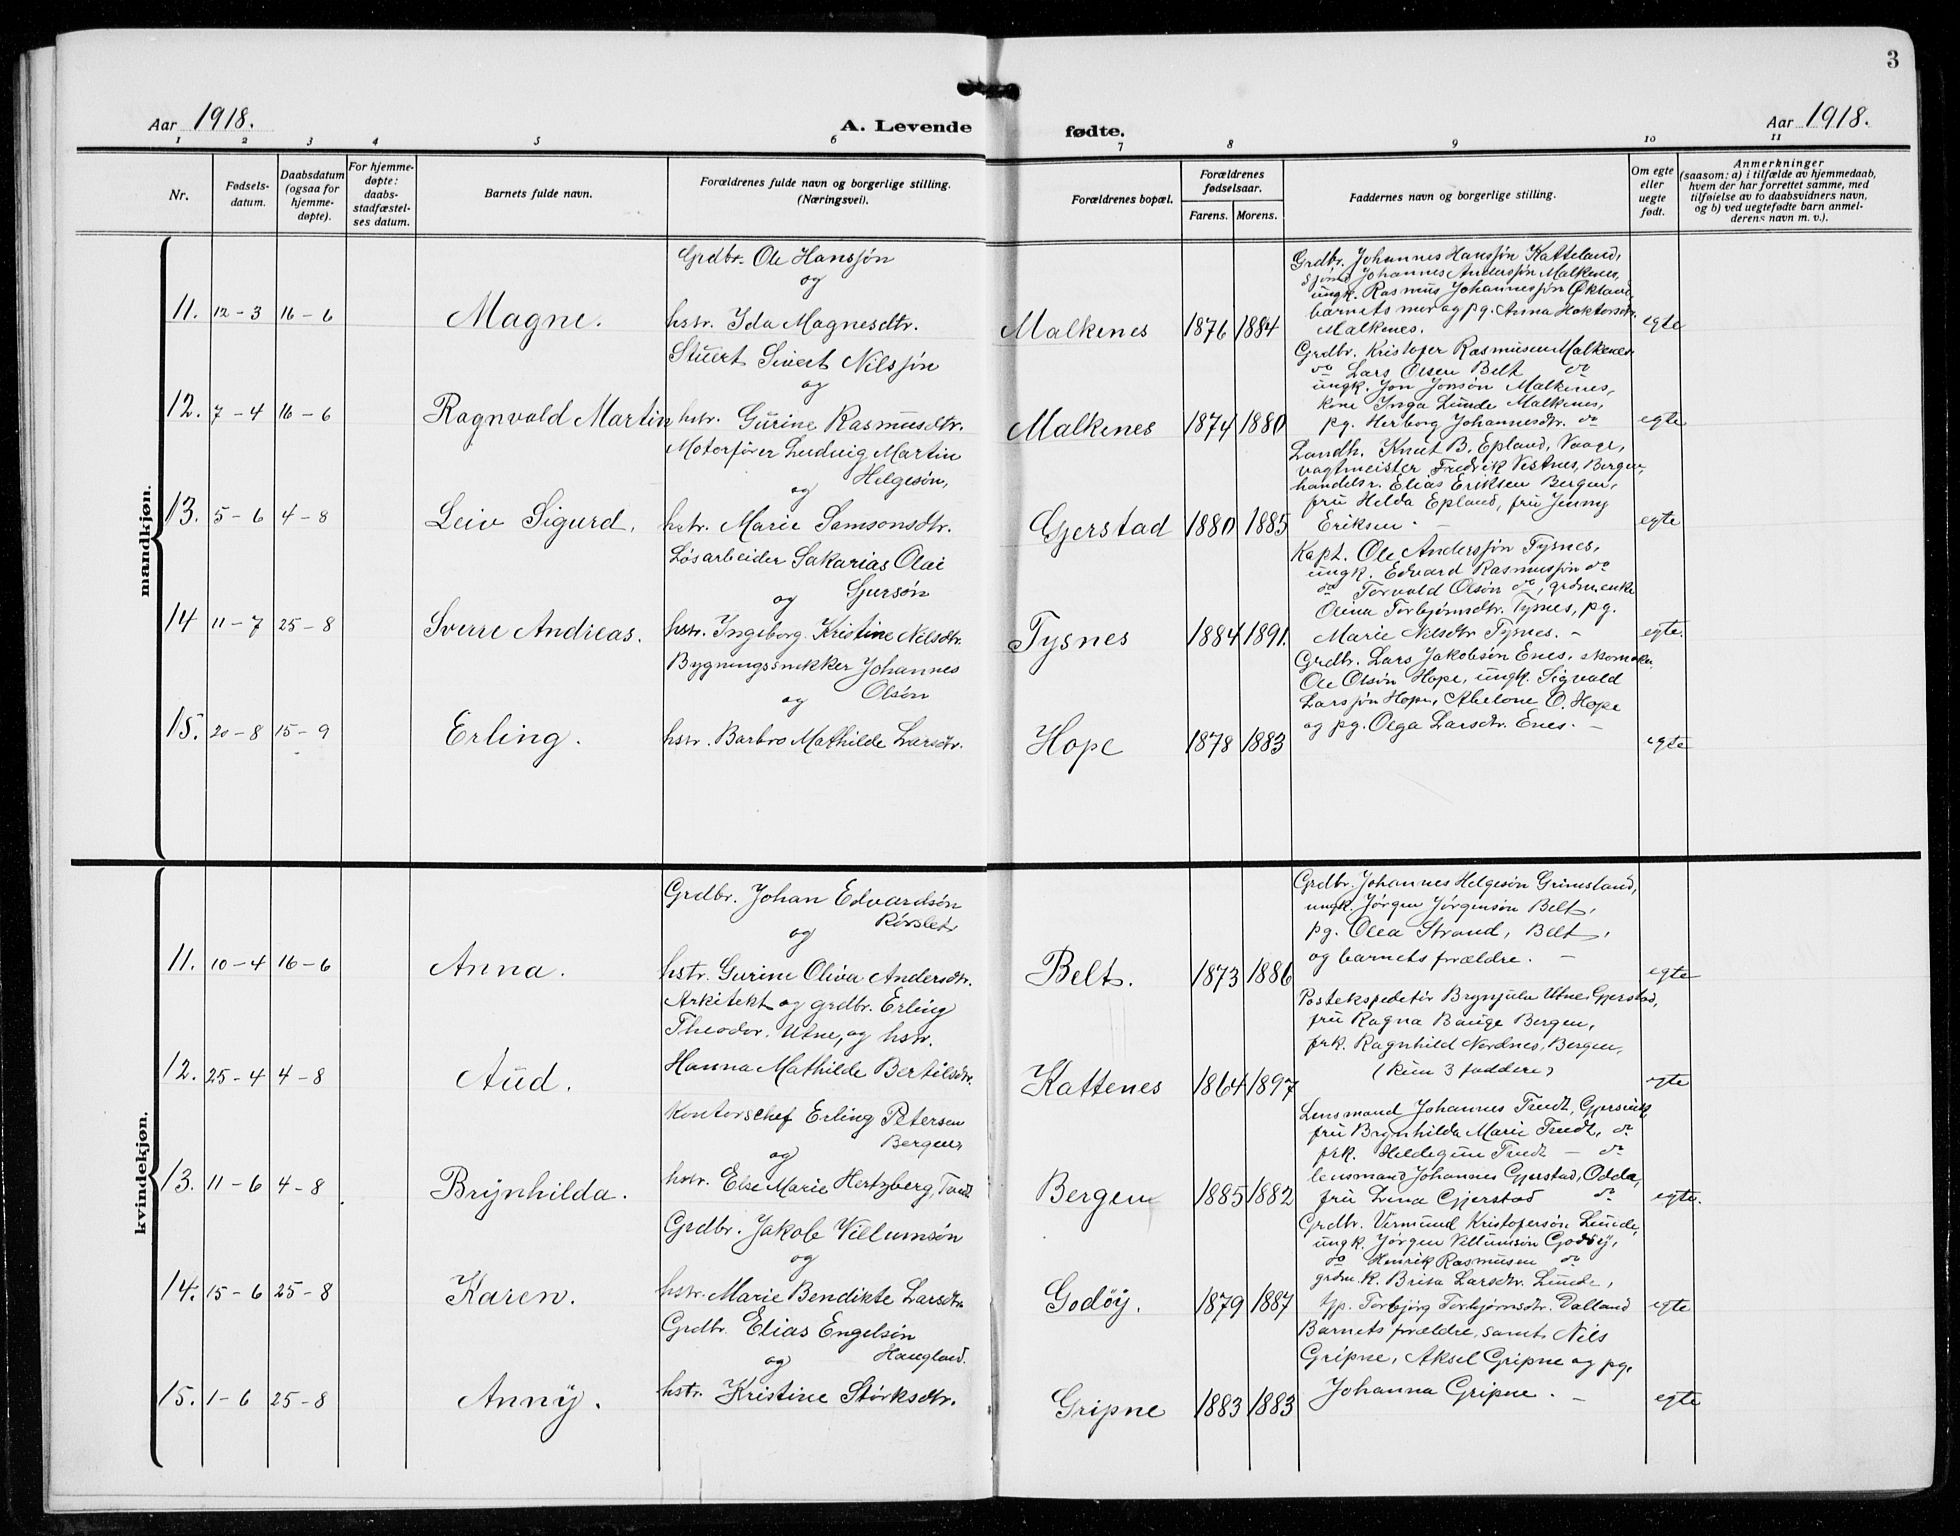 3
Aar 1918.
A. Levende
fødte.
Aar 1918.
1 2 3 4 5 6 7 8 9 10 11
Nr.
Fødsels-
datum.
Daabsdatum
(ogsaa for
hjemme-
døpte).
For hjemme-
døpte:
daabs-
stadfæstel-
ses datum.
Barnets fulde navn.
Forældrenes fulde navn og borgerlige stilling.
(Næringsvei).
Forældrenes bopæl.
Forældrenes
fødselsaar.
Farens. Morens.
Faddernes navn og borgerlige stilling.
Om egte
eller
uegte
født.
Anmerkninger
(saasom: a) i tilfælde av hjemmedaab,
hvem der har forrettet samme, med
tilføielse av to daabsvidners navn,
og b) ved uegtefødte barn anmel-
derens navn m. v.).
mandkjøn.
11. 12-3 16-6 Magne.
Grdbr. Ole Hansjøn
og
hstr. Ida Magnesdtr.
Malkenes 1876 1884
Grdbr. Johannes Hansjøn Katteland,
Johannes Andersjøn Malkenes,
ungk. Rasmus Johannesjøn
barnets mor og pg. Anna
Malkenes.
egte
12. 7-4 16-6 Ragnvald Martin
Stuert Sivert Nilsjøn
og
hstr. Gurine Rasmusdtr.
Malkenes 1874 1880
Grdbr. Kristofer Rasmusen Malkenes
do Lars Olsen Belt do
ungk. Jon Jonsøn Malkenes,
kone Inga Lunde Malkenes,
pg. Herborg Johannesdtr. do
egte
13. 5-6 4-8 Leiv Sigurd.
Motorfører Ludvig Martin
Helgesøn,
og
hstr. Marie Samsonsdtr.
Gjerstad 1880 1885
Landh. Knut B. Epland, Vaage,
vagtmeister Fredrik Vestnes, Bergen,
handelsr. Elias Eriksen Bergen,
fru Helda Epland, fru Jenny
Eriksen. –
egte
14 11-7 25-8 Sverre Andreas.
Løsarbeider Sakarias Olai
Gjursøn
og
hstr. Ingeborg Kristine Nilsdtr.
Tysnes 1884 1891.
Kapt. Ole Andersjøn Tysnes,
ungk. Edvard Rasmusjøn do
do Torvald Olsøn do, grdm.enke
Olina Torbjørnsdtr. Tysnes, pg.
Marie Nilsdtr Tysnes. –
egte.
15. 20-8 15-9 Erling.
Bygningssnekker Johannes
Olsøn
og
hstr. Barbro Mathilde Larsdtr.
Hope 1878 1883
Grdbr. Lars Jakobsøn Enes, skomaker
Ole Olsøn Hope, ungk. Sigvald
Larsjøn Hope, Abelone O. Hope
og pg. Olga Larsdtr. Enes. –
egte
kvindekjøn.
11. 10-4 16-6 Anna.
Grdbr. Johan Edvardsøn
Rørslet
og
hstr. Gurine Oliva Andersdtr.
Belt. 1873 1886
Grdbr. Johannes Helgesøn Grimsland,
ungk. Jørgen Jørgensøn Belt,
pg. Olea Strand, Belt,
og barnets forældre. –
egte
12. 25-4 4-8 Aud.
Arkitekt og grdbr. Erling
Theodor. Utne, og hstr.
Hanna Mathilde Bertilsdtr.
Kattenes 1864 1897
Postekspeditør Brynjulv Utne, Gjerstad,
fru Ragna Bauge Bergen,
frk. Ragnhild Nordnes, Bergen,
(kun 3 faddere)
egte
13. 11-6 4-8 Brynhilda.
Kontorschef Erling Petersen
Bergen,
og
hstr. Else Marie Hertzberg,
Bergen 1885 1882
Lensmand Johannes
fru Brynhilda Marie do
frk. Hildegun – do
lensmand Johannes Gjerstad, Odda,
fru Lina Gjerstad do
egte.
14. 15-6 25-8 Karen.
Grdbr. Jakob Villumsøn
og
hstr. Marie Bendikte Larsdtr.
Godøy. 1879 1887
Grdbr. Vermund Kristofersøn Lunde,
ungk. Jørgen Villumsøn Godøy,
do Henrik Rasmusen do
grdm.k. Brita Larsdtr. Lunde,
tjp. Torbjørg Torbjørnsdtr. Dalland
egte
15. 1-6 25-8 Anny.
Grdbr. Elias Engelsøn
Haugland.
og
hstr. Kristine Størksdtr.
Gripne 1883 1883
Barnets forældre, samt Nils
Gripne, Aksel Gripne og pg.
Johanna Gripne. –
egte